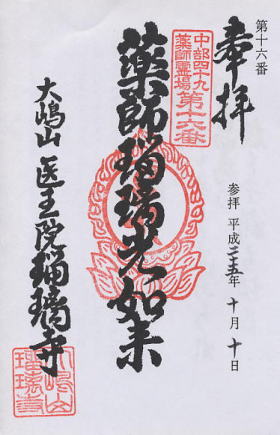 第十六番
奉拝
参拝 平成二十五年 十月 十日
中部四十九
薬師霊場
第十六番
薬師瑠璃光如来
大嶋山 医王院 瑠璃寺
大嶋山
瑠璃寺